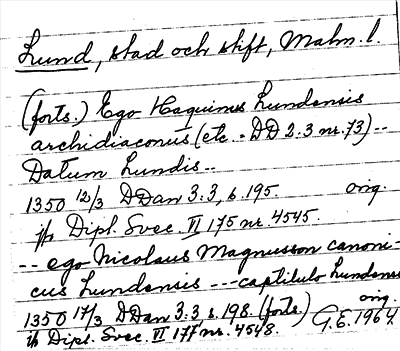 Lund, stad och stift, Malm. l.
(forts.) Ego Haquinus Lundensis
archidiaconus (etc. = DD 2.3 nr. 73) --
Datum Lundis --
1350 12/3 DDan 3.3, s. 195. orig.
jfr Dipl. Svec. VI 175 nr. 4545.
-- ego Nicolaus Magnusson canoni-
cus Lundensis --- capitulo Lundensi
1350 17/3 DDan 3.3 s. 198. (forts.) orig.
jfr Dipl. Svec. VI 177 nr. 4548. G.E. 1964.